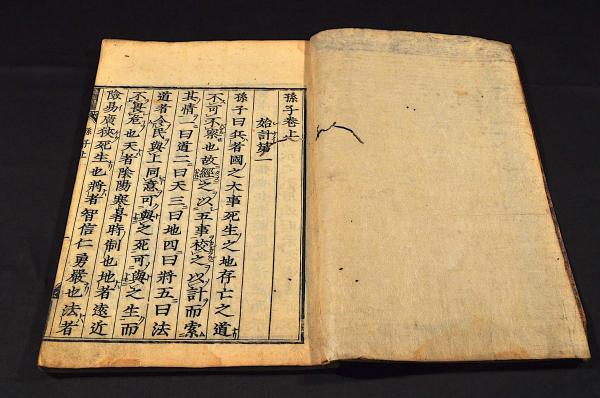 孫子卷上
始計第一
孫子曰兵者國之大事死生之地存亡之道
不可不察也故經之以五事校之以計而索
其情一曰道二曰天三曰地四曰將五曰法
道者令民與上同意可與之死可與之生而
不畏危也天者陰陽寒暑時制也地者遠近
險易廣狹死生也將者智信仁勇嚴也法者
孫子上